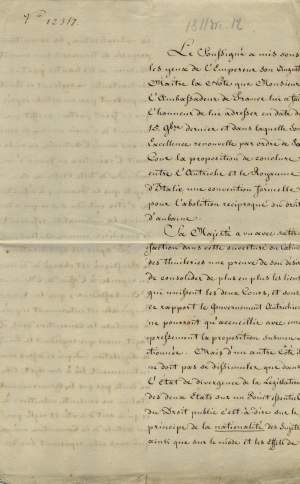 Le Soussigné a mis sous
les yeux de l'Empereur Son Auguste
Maître la Note que Monsieur
l'Ambassadeur de France lui a fait
l'honneur de lui adresser en date du
15 9bre dernier et dans laquelle Son
Excellence renouvelle par ordre de Sa
Cour la proposition de conclure
entre l'Autriche et le Royaume
d'Italie une convention formelle
pour l'abolition réciproque du droit
d'aubaine.
Sa Majesté a vu avec satis-
faction dans cette ouverture du Cabinet
des Thuileries une preuve de son désir
de consolider de plus en plus les liens
qui unissent les deux Cours, et sous
ce rapport le Gouvernement Autrichien
ne pourroit qu'accueillir avec em-
pressement la proposition susmen-
tionnée. Mais d'un autre côté il
ne doit pas se dissimuler que dans
l'état de divergence de la Législation
des deux Etats sur un Point essentiel
du Droit public c'est à dire sur le
principe de la nationalité des Sujets
ainsi que sur le mode et les effets de